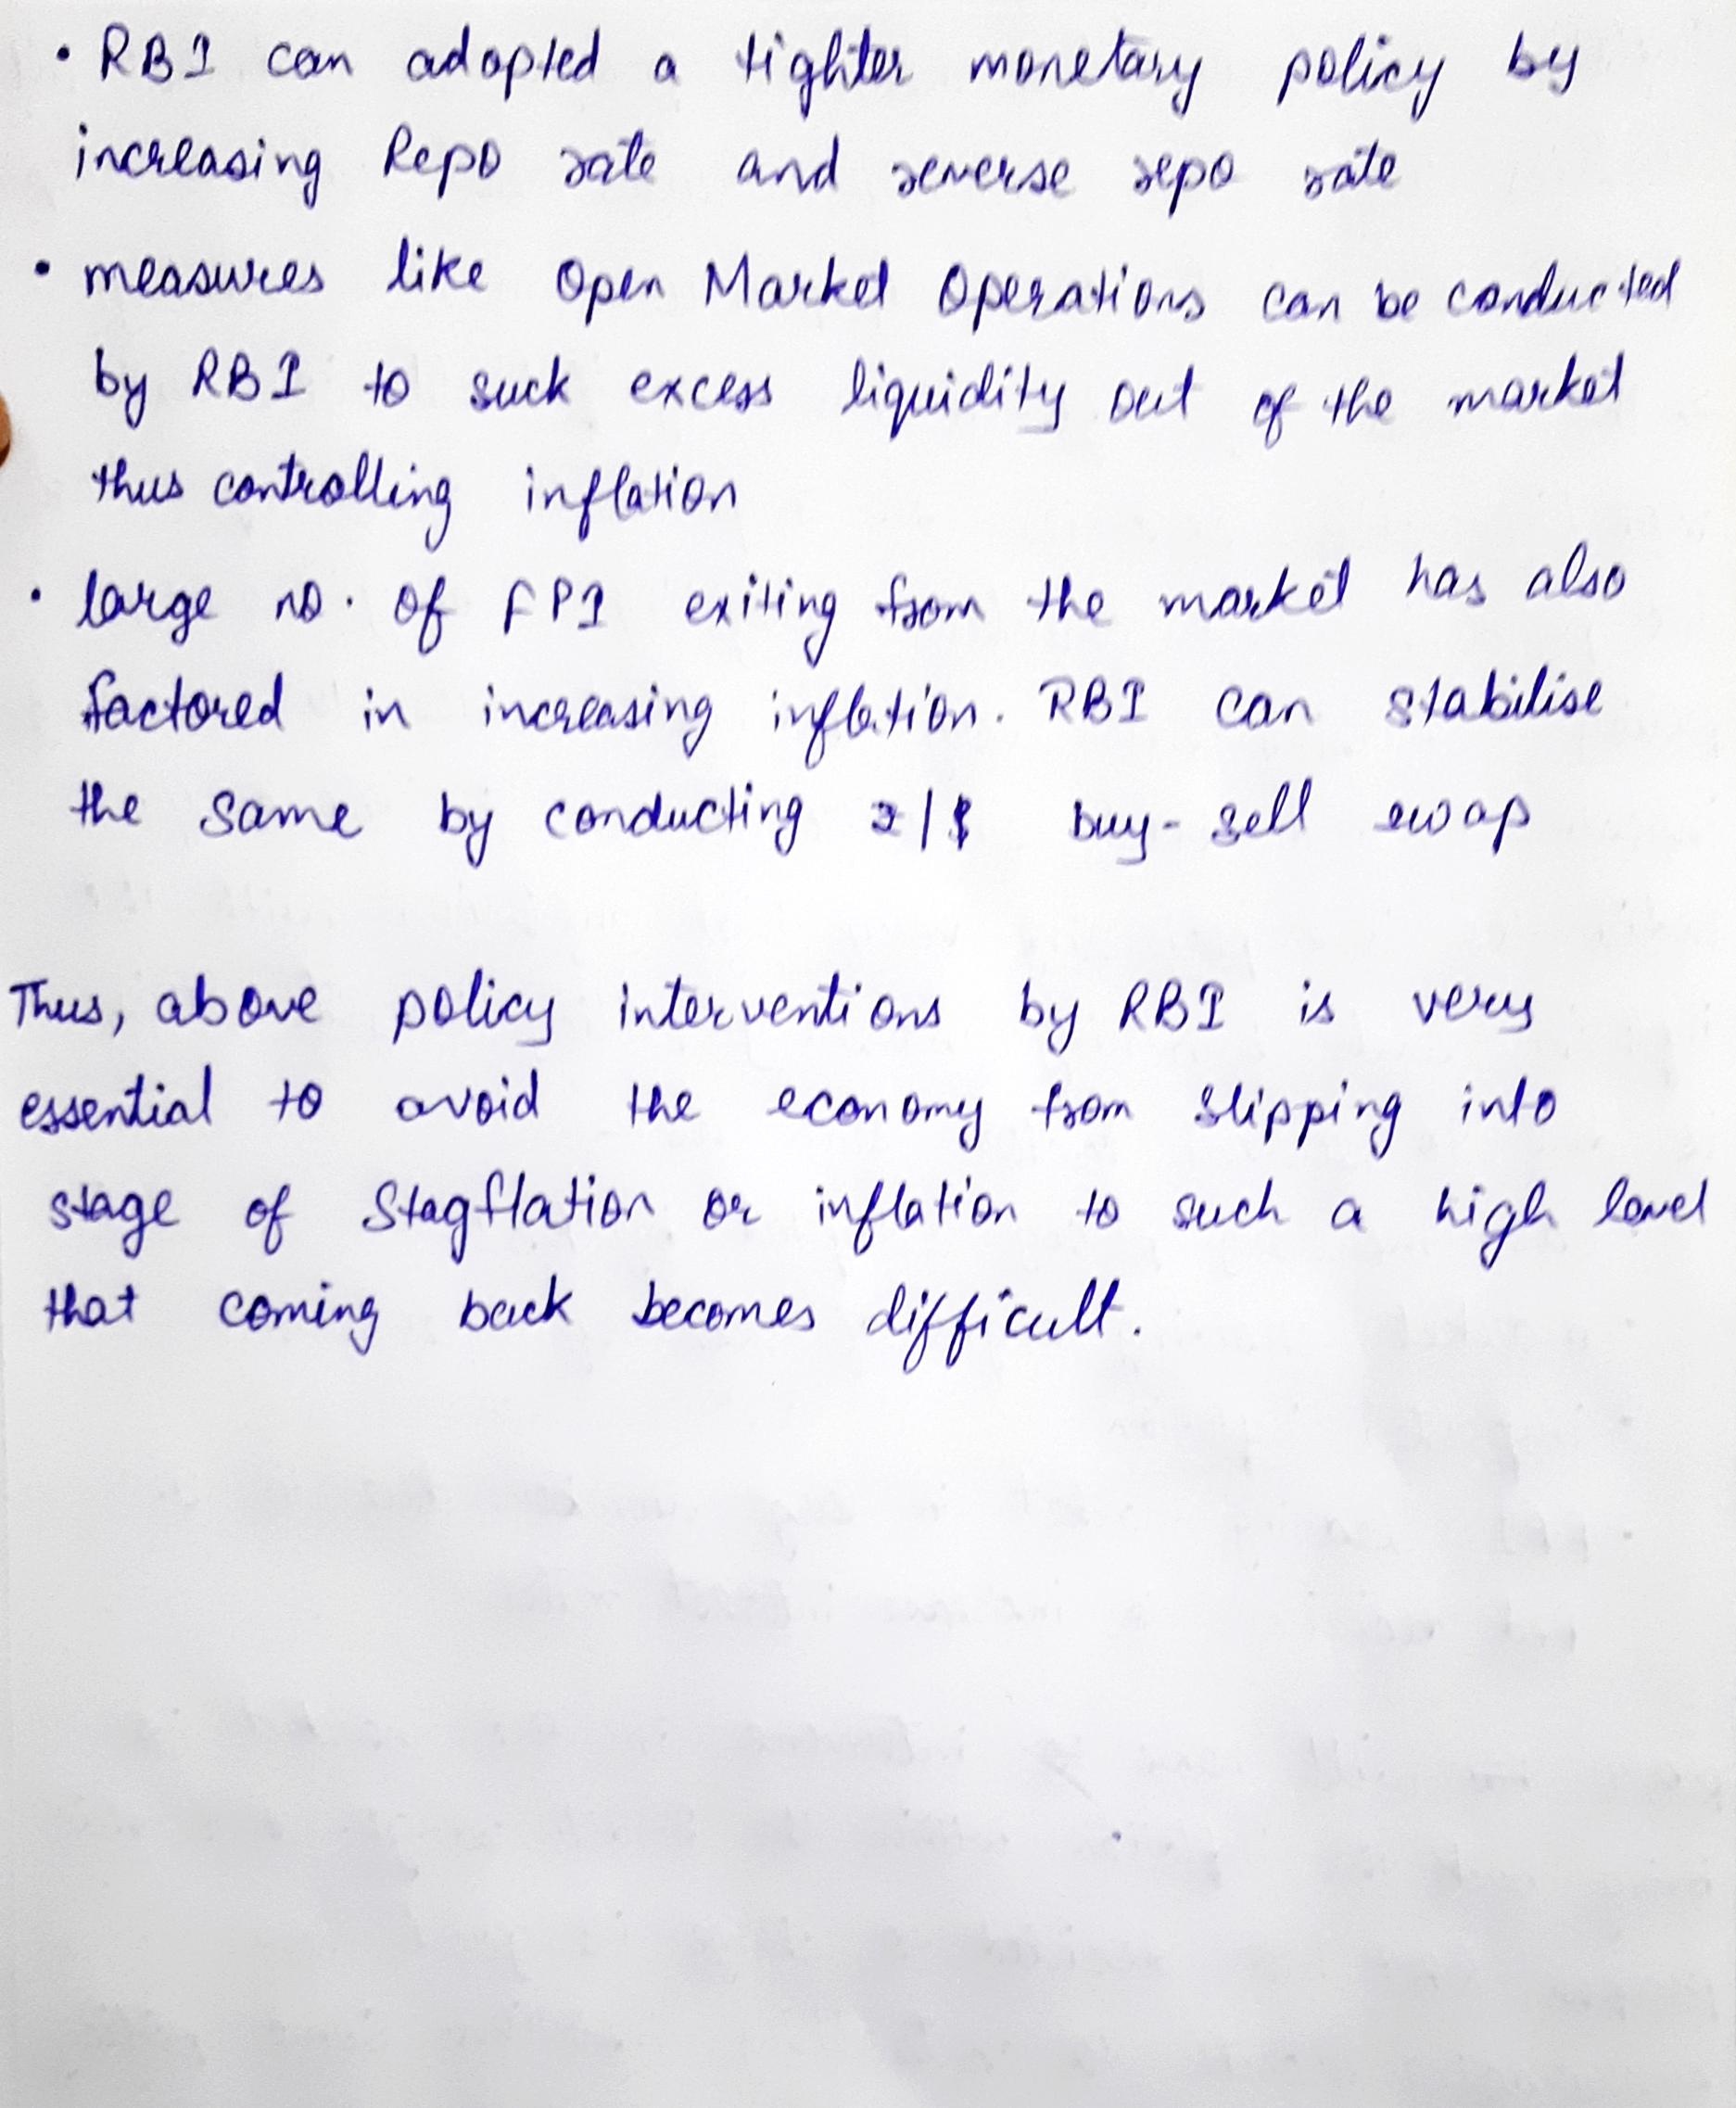 • RBI can adopted a tighter monetary policy by
increasing Repo rate and reverse repo rate
• measures like Open Market Operations can be conducted
by RBI to suck excess liquidity out of the market
thus controlling inflation
• large no. of FPI exiting from the market has also
factored in increasing inflation. RBI can stabilise
the same by conducting ₹/$ buy-sell swap
Thus, above policy interventions by RBI is very
essential to avoid the economy from slipping into
stage of Stagflation or inflation to such a high level
that coming back becomes difficult.